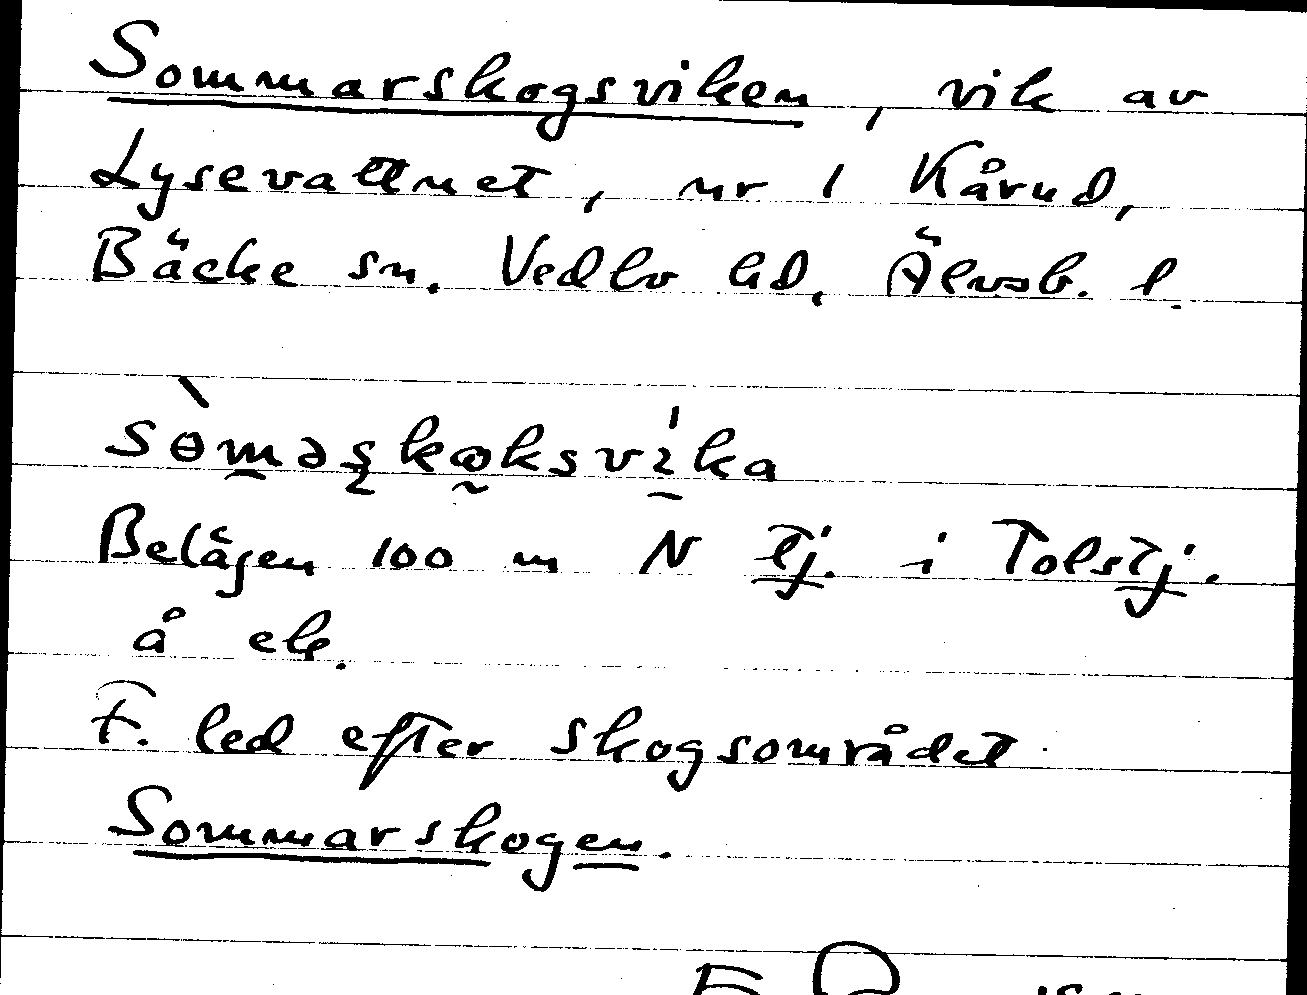 Sommarskogsviken, vik av
Lysevattnet, nr 1 Kårud,
Bäcke sn. Vedbo hd, Älvsb. l.
sòməʂkɷksvìka
Belägen 100 m N Tj. i Tolstj.
å ek.
F. led efter skogsområdet
Sommarskogen.